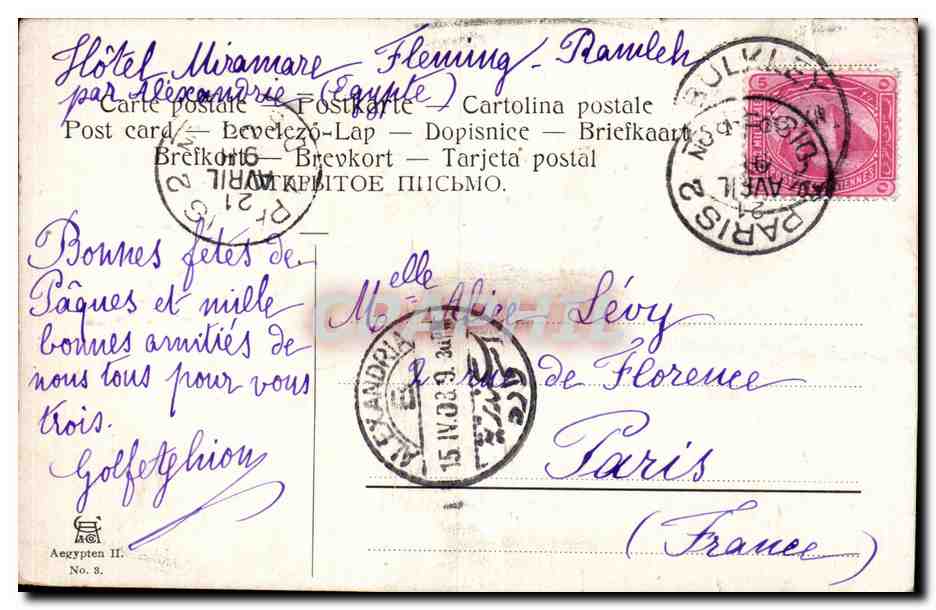 Hôtel Miramare Fleming - Ramleh
par Alexandrie - (Egypte)
Carte postale — Postkarte — Cartolina postale
Post card — Levelező-Lap — Dopisnice — Briefkaart
Brefkort — Brevkort — Tarjeta postal
ОТКРЫТОЕ ПИСЬМО.
BULKLEY
PARIS 2
21
AVRIL
5 5
PARIS 2
21
AVRIL
Bonnes fêtes de
Pâques et mille
bonnes amitiés de
nous tous pour vous
trois.
Melle Alice Lévy
2 rue de Florence
Paris
(France)
ALEXANDRIA
15.IV.08.9
CPAPHIL
Aegypten II.
No. 3.